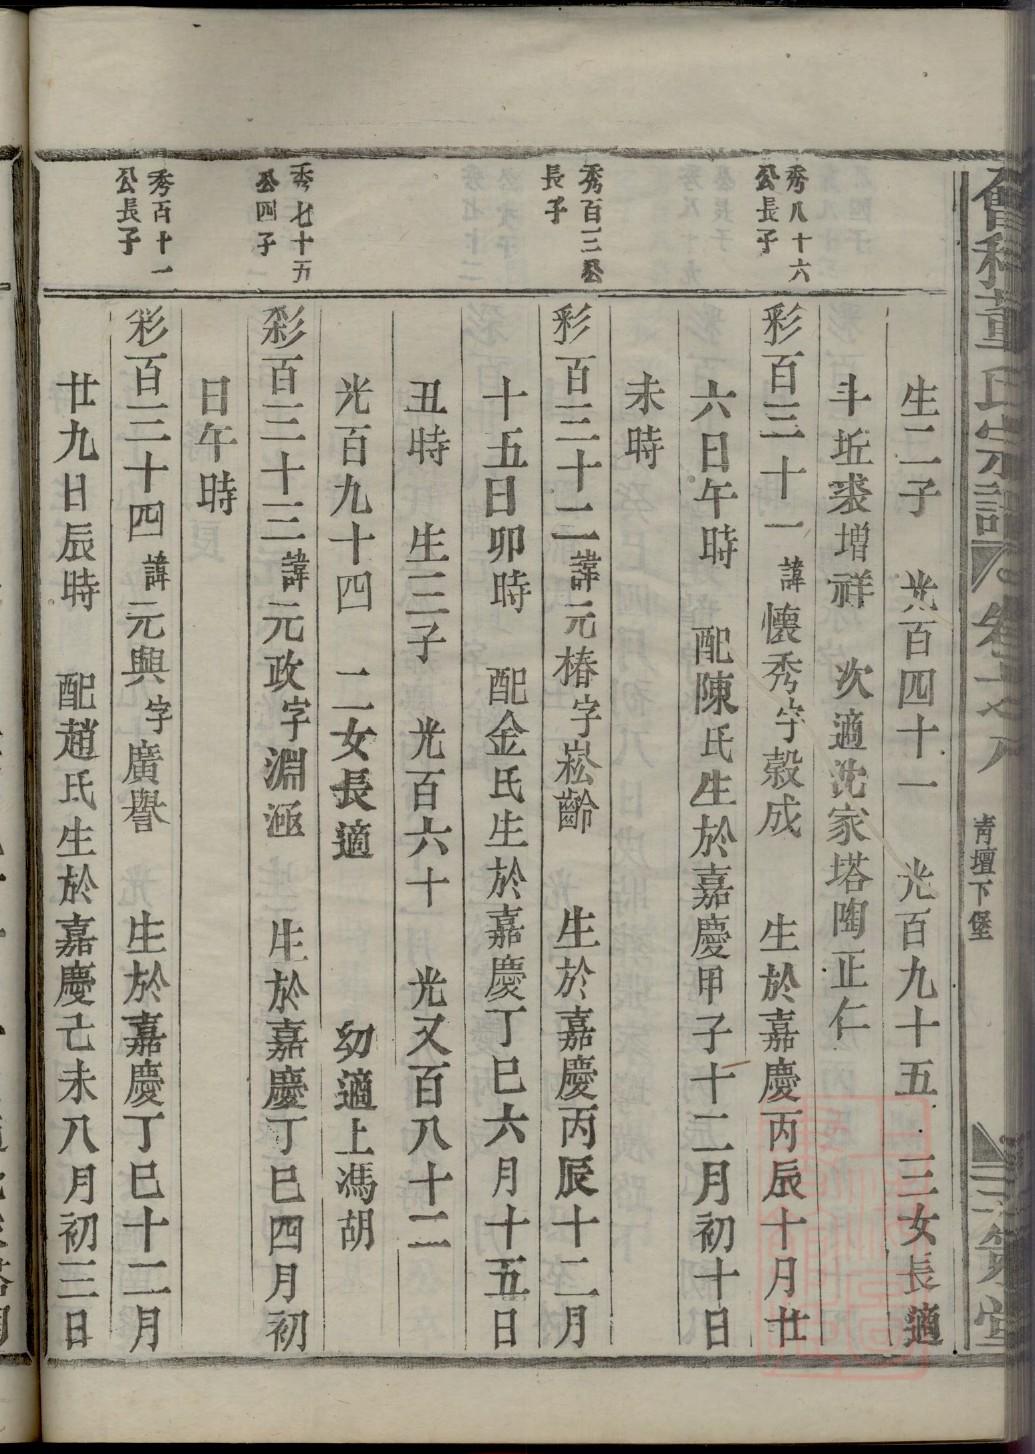 董氏宗譜 卷 青壇下堡 三策堂
生二子 光百四十一 光百九十五 三女長適
斗坵裘增祥 次適沈家塔陶正仁
秀八十六
公長子
彩百三十一諱懷秀字榖成 生於嘉慶丙辰十月廿
六日午時 配陳氏生於嘉慶甲子十二月初十日
未時
秀百三公
長子
彩百三十二諱元椿字崧齡 生於嘉慶丙辰十二月
十五日卯時 配金氏生於嘉慶丁巳六月十五日
丑時 生三子 光百六十 光又百八十二
光百九十四 二女長適 幼適上馮胡
秀七十五
公四子
彩百三十三諱元政字淵涵 生於嘉慶丁巳四月初
日午時
秀百十一
公長子
彩百三十四諱元興字廣譽 生於嘉慶丁巳十二月
廿九日辰時 配趙氏生於嘉慶己未八月初三日